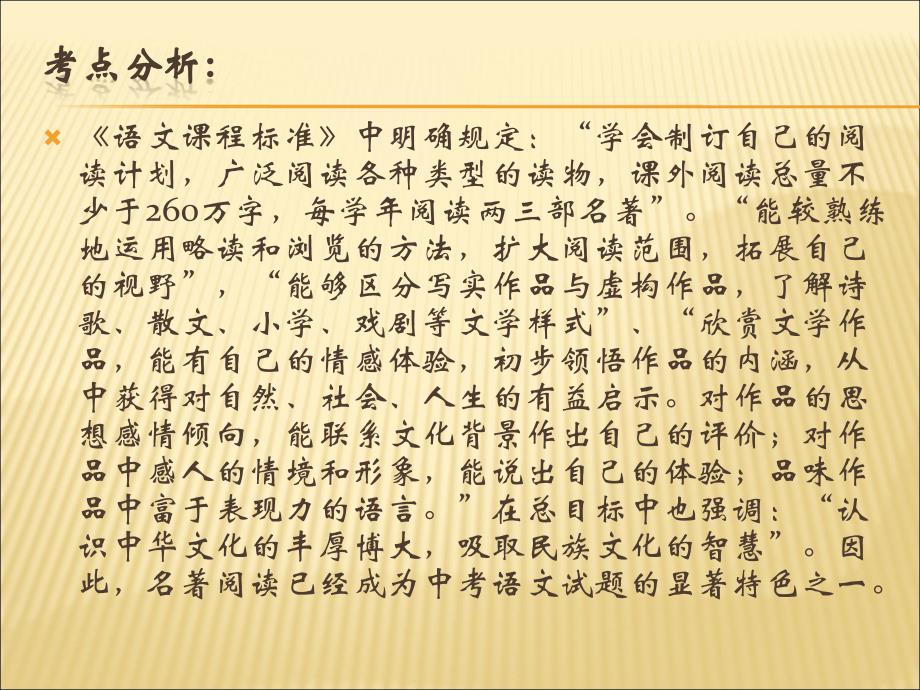 考点分析：
《语文课程标准》中明确规定：“学会制订自己的阅
读计划，广泛阅读各种类型的读物，课外阅读总量不
少于260万字，每学年阅读两三部名著”。“能较熟练
地运用略读和浏览的方法，扩大阅读范围，拓展自己
的视野”，“能够区分写实作品与虚构作品，了解诗
歌、散文、小学、戏剧等文学样式”、“欣赏文学作
品，能有自己的情感体验，初步领悟作品的内涵，从
中获得对自然、社会、人生的有益启示。对作品的思
想感情倾向，能联系文化背景作出自己的评价；对作
品中感人的情境和形象，能说出自己的体验；品味作
品中富于表现力的语言。”在总目标中也强调：“认
识中华文化的丰厚博大，吸取民族文化的智慧”。因
此，名著阅读已经成为中考语文试题的显著特色之一。